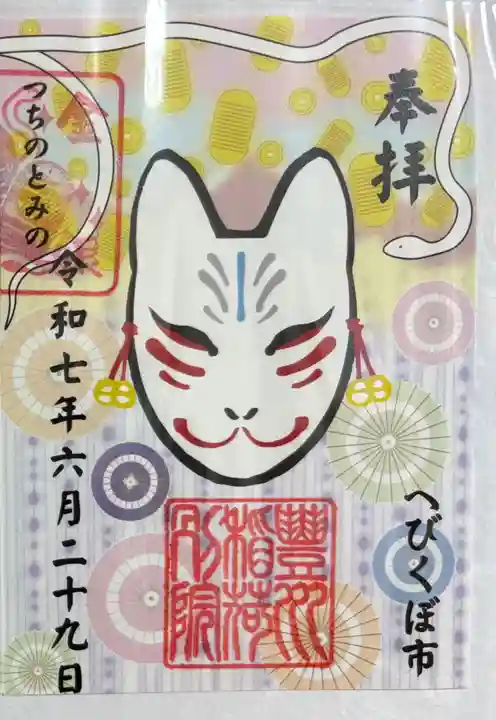 奉拝
へびくぼ市
豊川
稲荷
別院
つちのとみの
令和七年六月二十九日